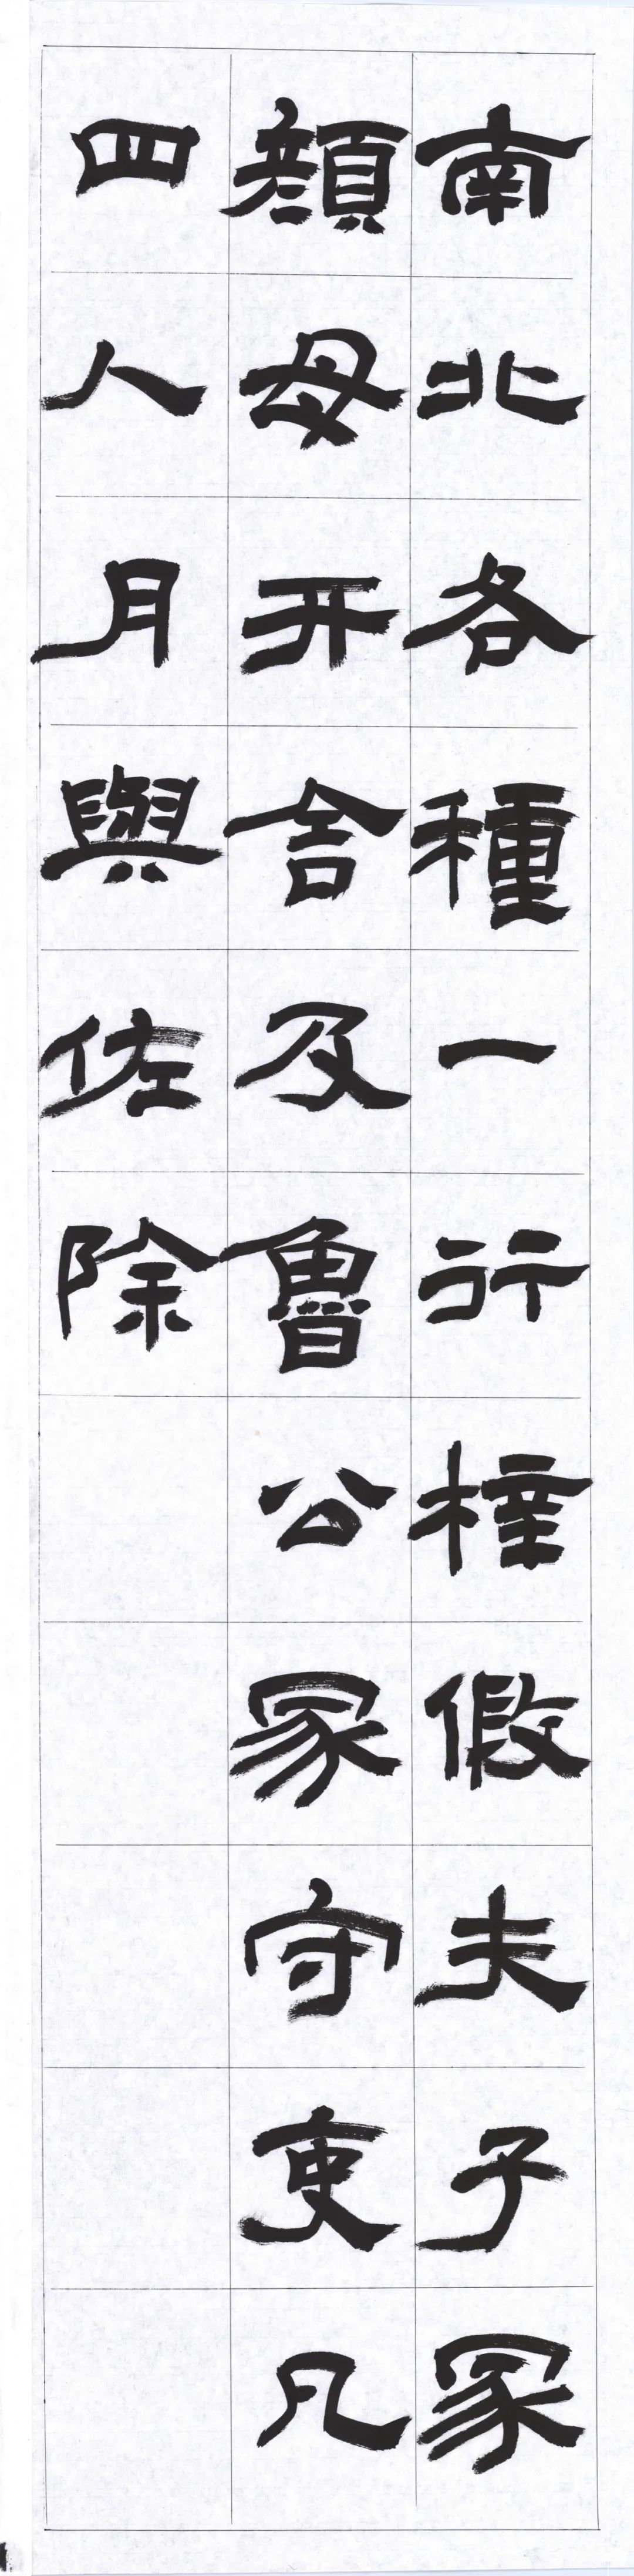 南北各種一行梓假夫子冢
顏母开舍及魯公冢守吏凡
四人月與佐除